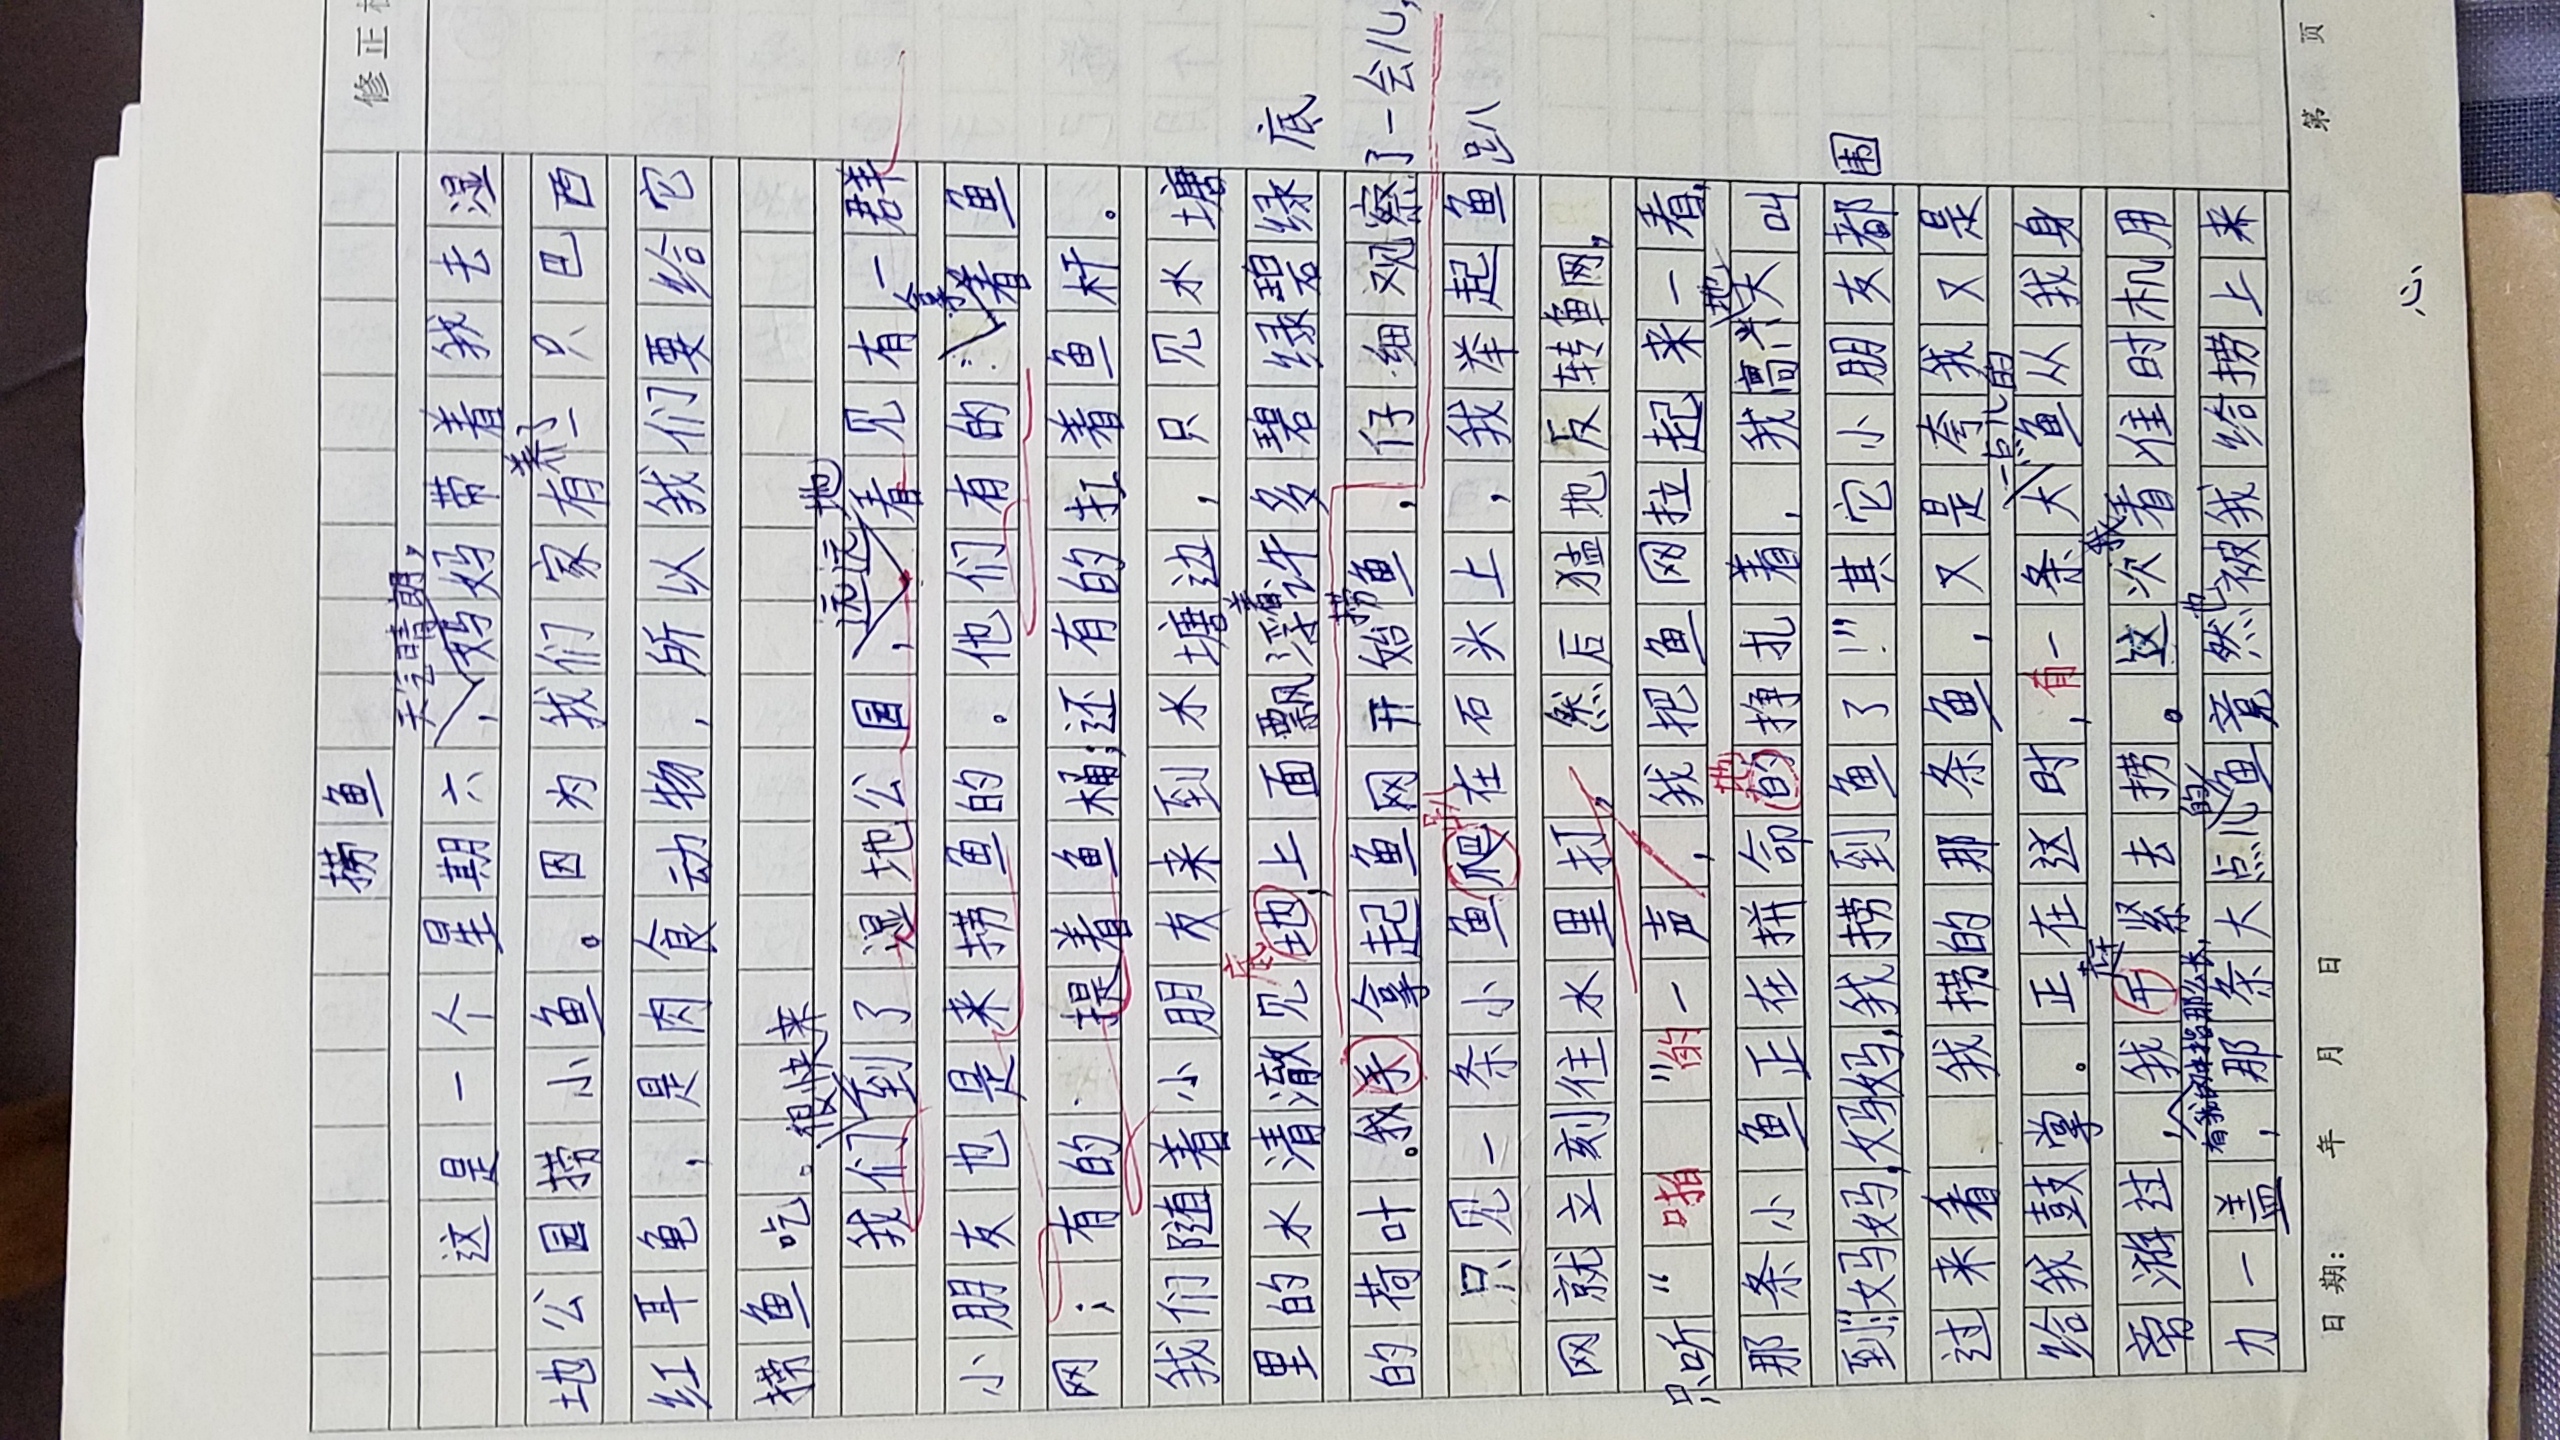 修正
捞鱼
天气晴朗，
这是一个星期六，妈妈带着我去湿
养了
地公园捞小鱼。因为我们家有一只巴西
红耳龟，是肉食动物，所以我们要给它
捞鱼吃。
很快来 远远地
我们到了湿地公园，看见有一群
拿
小朋友也是来捞鱼的。他们有的：着鱼
网；有的提着鱼桶；还有的扛着鱼杆。
我们随着小朋友来到水塘边，只见水塘
底 着 底
里的水清澈见地，上面飘浮许多碧绿碧绿
捞
的荷叶。我手拿起鱼网开始鱼，仔细观察了一会儿，
趴 趴
只见一条小鱼爬在石头上，我举起鱼
网就立刻往水里扣，然后猛地反转鱼网，
只听“啪”的一声，我把鱼网拉起来一看，
地 地
那条小鱼正在拼命的挣扎着，我高兴大叫
到：“妈妈，妈妈，我捞到鱼了！”其它小朋友都围
过来看我捞的那条鱼，又是夸我又是
一点儿的
给我鼓掌。正在这时，有一条大鱼从我身
旁游过，我牢紧去捞。这次我看准时机用
有我的手指那么长， 的 也
力一盖，那条大点儿鱼竟然被我给捞上来
日期： 年 月 日 第 页